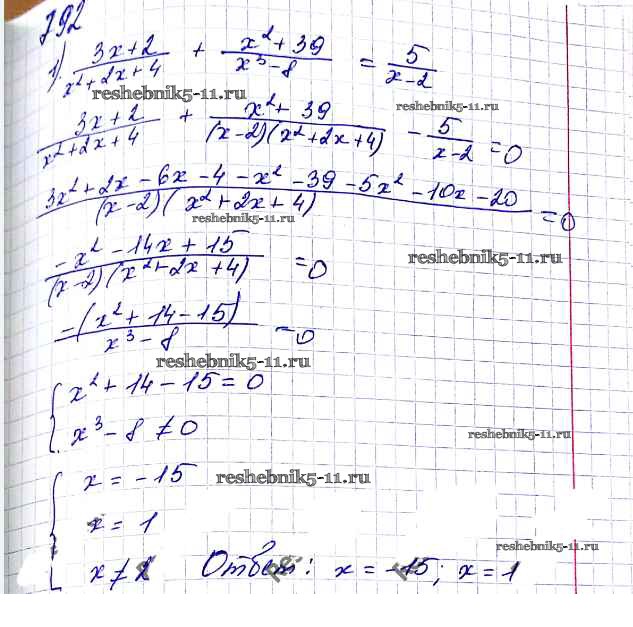 792
1). (3x+2)/(x²+2x+4) + (x²+39)/(x³-8) = 5/(x-2)
reshebnik5-11.ru
reshebnik5-11.ru
(3x+2)/(x²+2x+4) + (x²+39)/((x-2)(x²+2x+4)) - 5/(x-2) = 0
(3x²+2x-6x-4-x²-39-5x²-10x-20)/((x-2)(x²+2x+4)) = 0
reshebnik5-11.ru
(-x²-14x+15)/((x-2)(x²+2x+4)) = 0
reshebnik5-11.ru
(-(x²+14-15))/(x³-8) = 0
reshebnik5-11.ru
{ x²+14-15=0
x³-8≠0
reshebnik5-11.ru
{ x=-15
reshebnik5-11.ru
x=1
reshebnik5-11.ru
x≠2 Ответ: x=-15; x=1